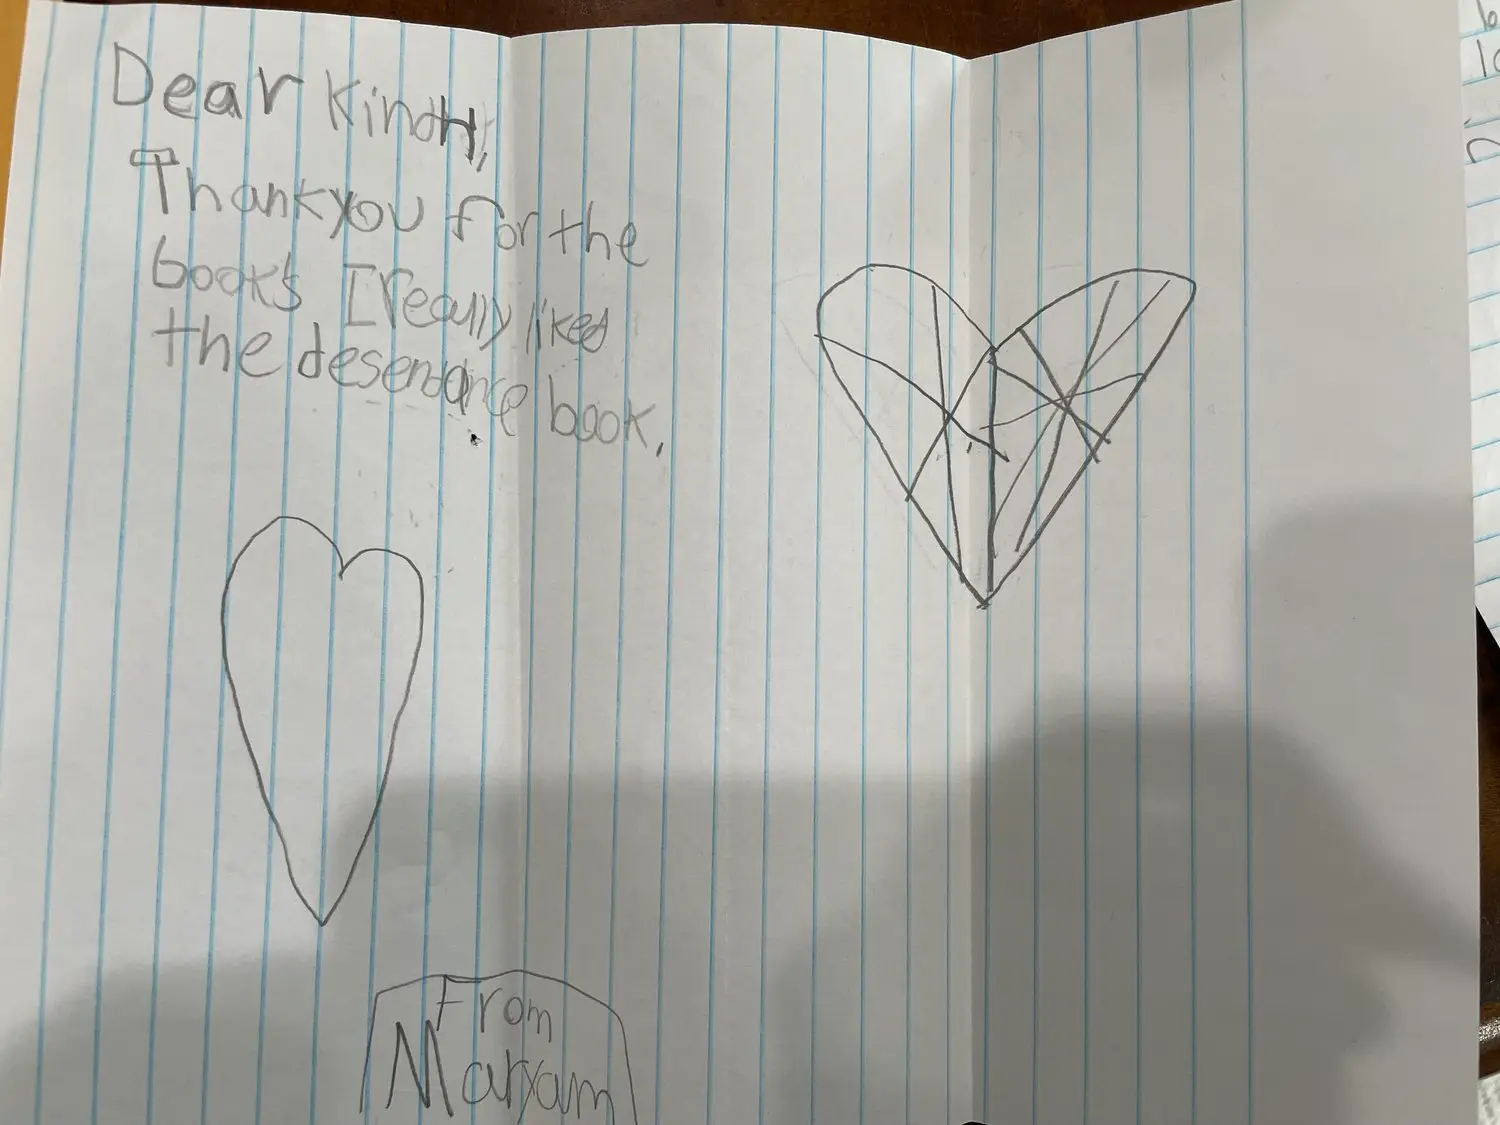 Dear KindH,
Thank you for the
books I really liked
the desendance book.
From
Maryam